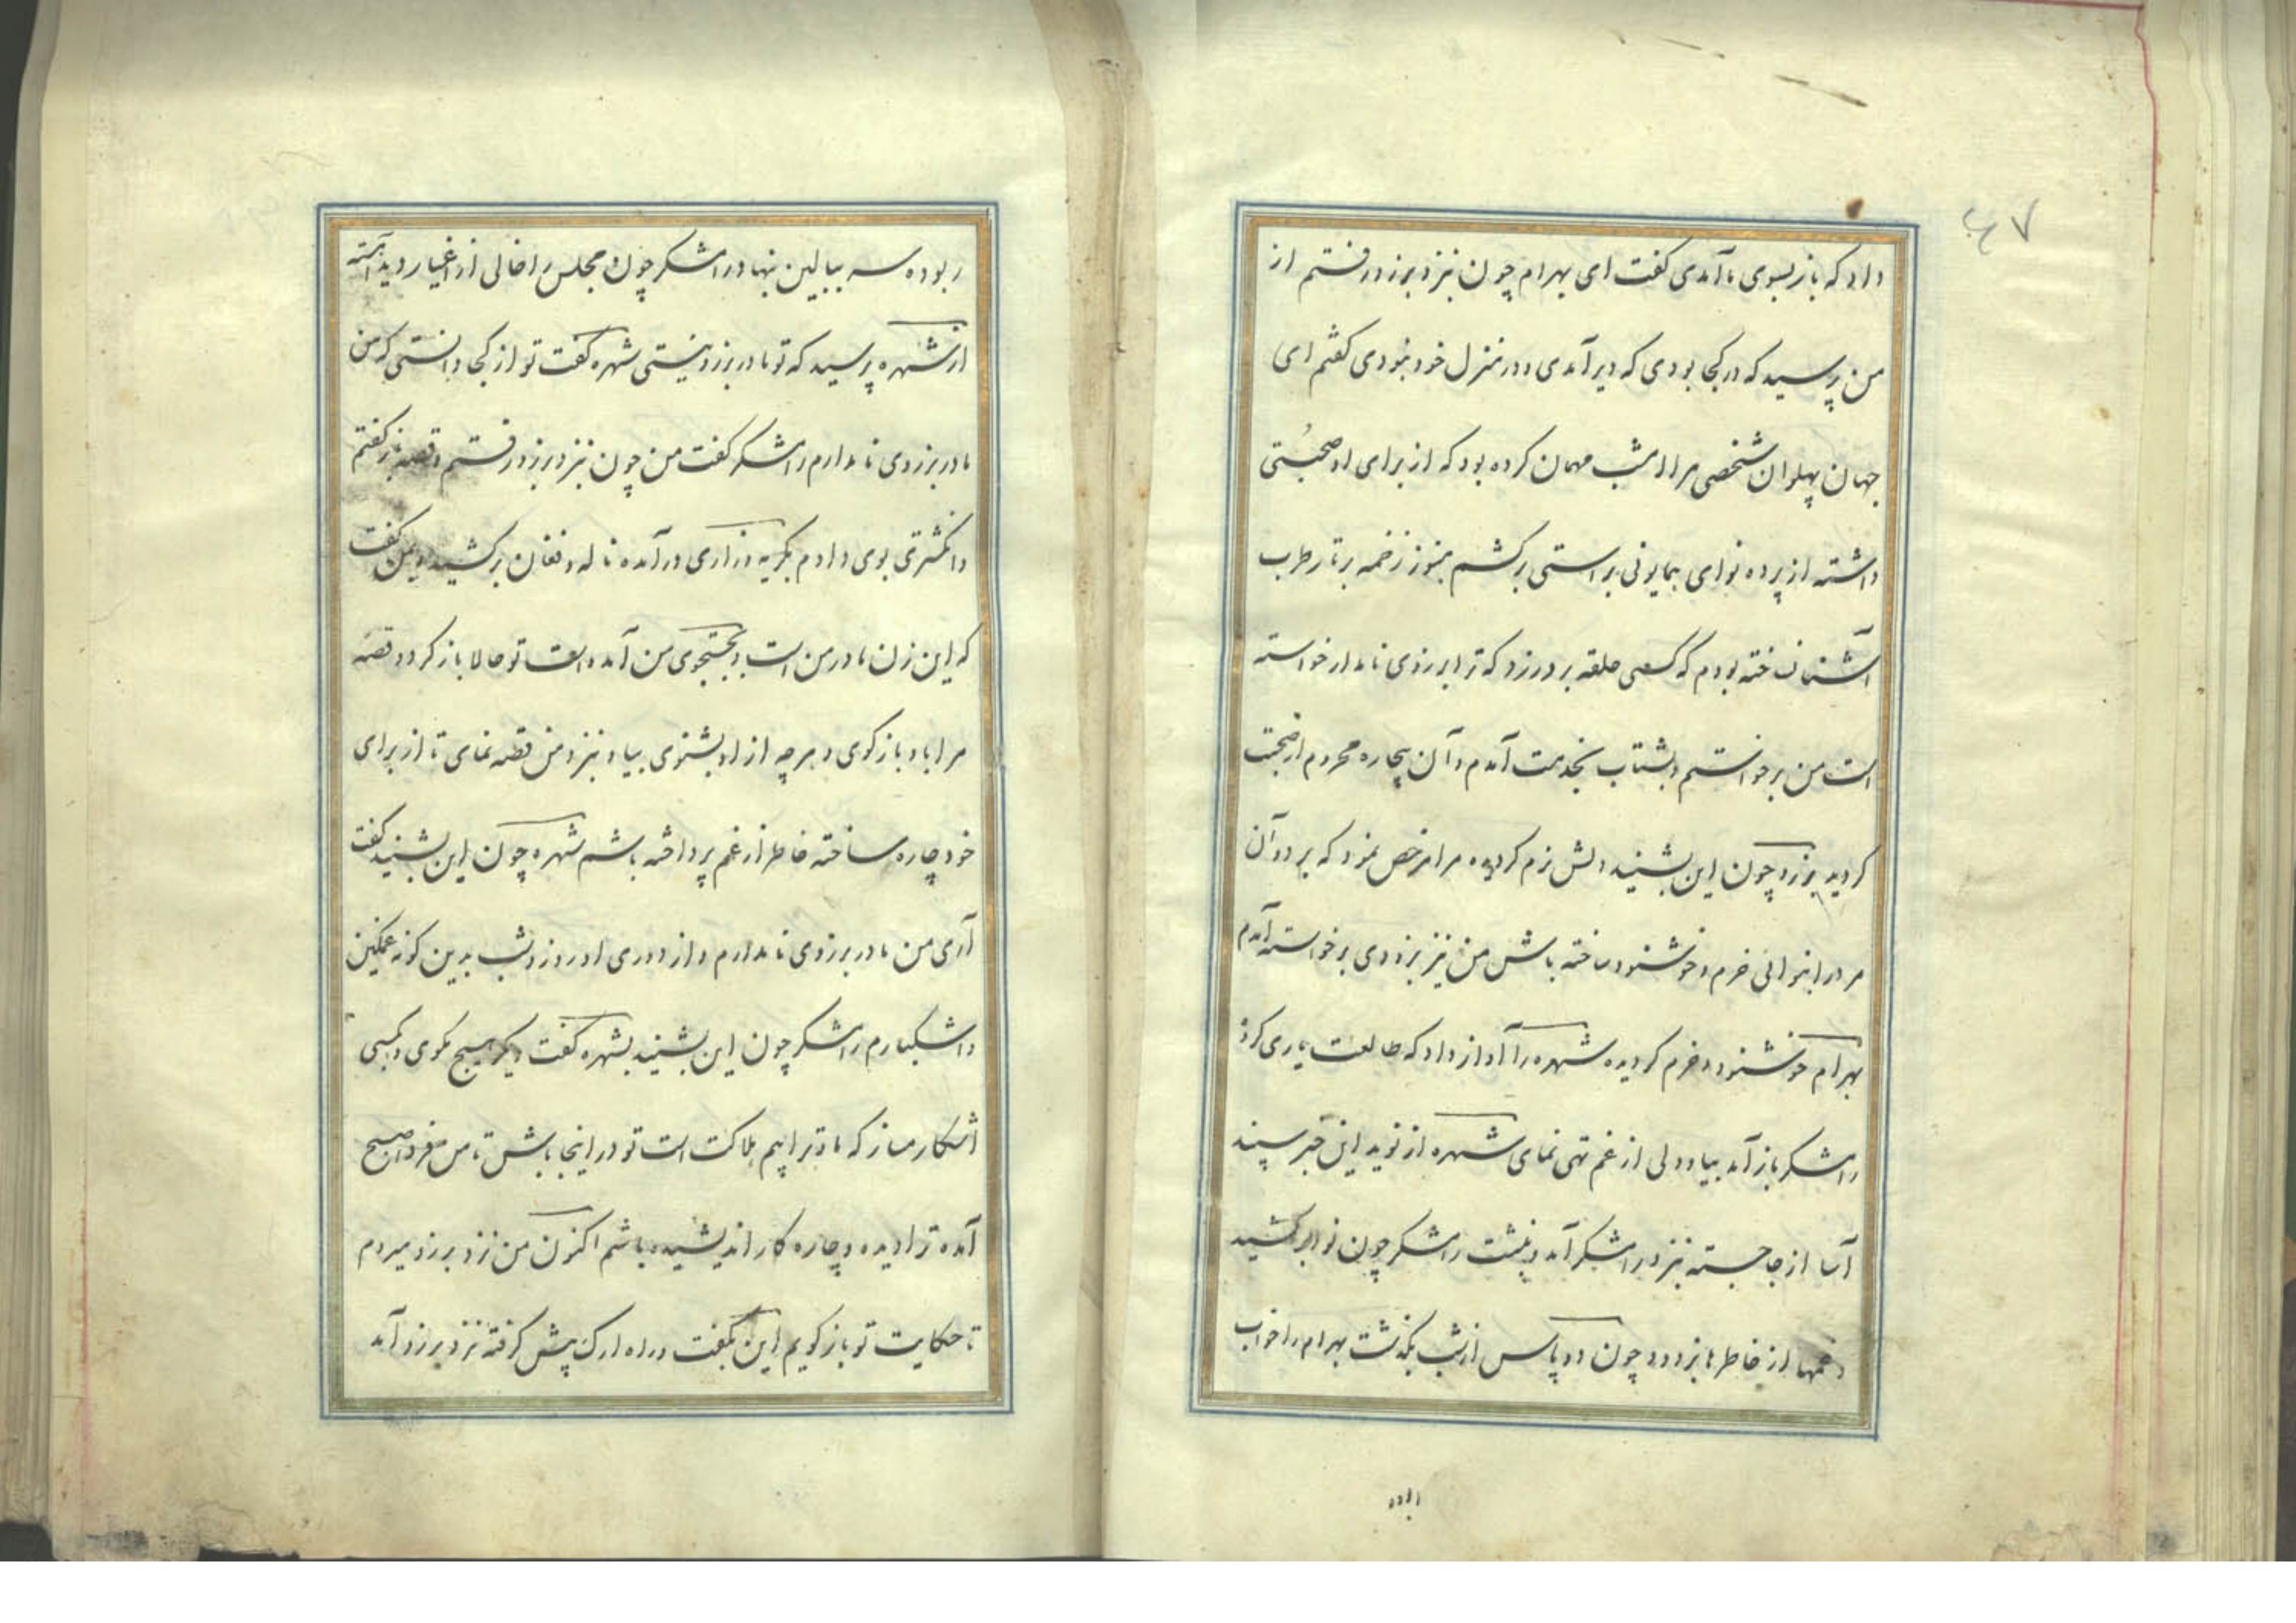 ۴۷
داد که باز بسوی ما آمدی گفت ای بهرام چون نزد برزو رفتم از
من پرسید که در کجا بودی که دیر آمدی و در منزل خود نبودی گفتم ای
جهان پهلوان شخصی مرا امشب مهمان کرده بود که از برای او صحبتی
داشته از پرده نوای همایونی براستی برکشم هنوز زخمه بر تار طرب
آشنا نساخته بودم که کسی حلقه بر در زد که ترا برزوی نامدار خواسته
است من برخواستم و بشتاب بخدمت آمدم و آن بیچاره محروم از صحبت
گردید برزو چون این بشنید دلش نرم گردیده مرا مرخص نمود که برو و آن
مرد را بنوائی خرم و خوشنود ساخته باش من نیز بزودی برخواسته آمدم
بهرام خوشنود و خرم گردیده شهره را آواز داد که طالعت یاری کرد
رامشگر باز آمد بیا و دلی از غم تهی نمای شهره از نوید این خبر سپند
آسا از جا جسته نزد رامشگر آمد و بنشست رامشگر چون نوا برکشید
و غمها از خاطرها بزدود چون دو پاس از شب بگذشت بهرام را خواب
ربوده
ربوده سر ببالین نهاد رامشگر چون مجلس را خالی از اغیار دید آهسته
از شهره پرسید که تو مادر برزو نیستی شهره گفت تو از کجا دانستی که من
مادر برزوی نامدارم رامشگر گفت من چون نزد برزو رفتم و قصه باز گفتم
و انگشتری بوی دادم بگریه و زاری درآمده ناله و فغان برکشید و بمن گفت
که این زن مادر من است و بجستجوی من آمده است تو حالا باز گرد و قصه
مرا با او بازگوی و هر چه از او بشنوی بیا و نزد من قصه نمای تا از برای
خود چاره ساخته خاطر از غم پرداخته باشم شهره چون این بشنید گفت
آری من مادر برزوی نامدارم و از دوری او روز و شب بدین گونه غمگین
و اشکبارم رامشگر چون این بشنید بشهره گفت دیگر هیچ مگوی و بکسی
آشکار مساز که ما و ترا بیم هلاکت است تو در اینجا باش تا من فردا صبح
آمده ترا دیده و چاره کار اندیشیده باشم اکنون من نزد برزو میروم
تا حکایت تو باز گویم این بگفت و راه ارک پیش گرفته نزد برزو آمد